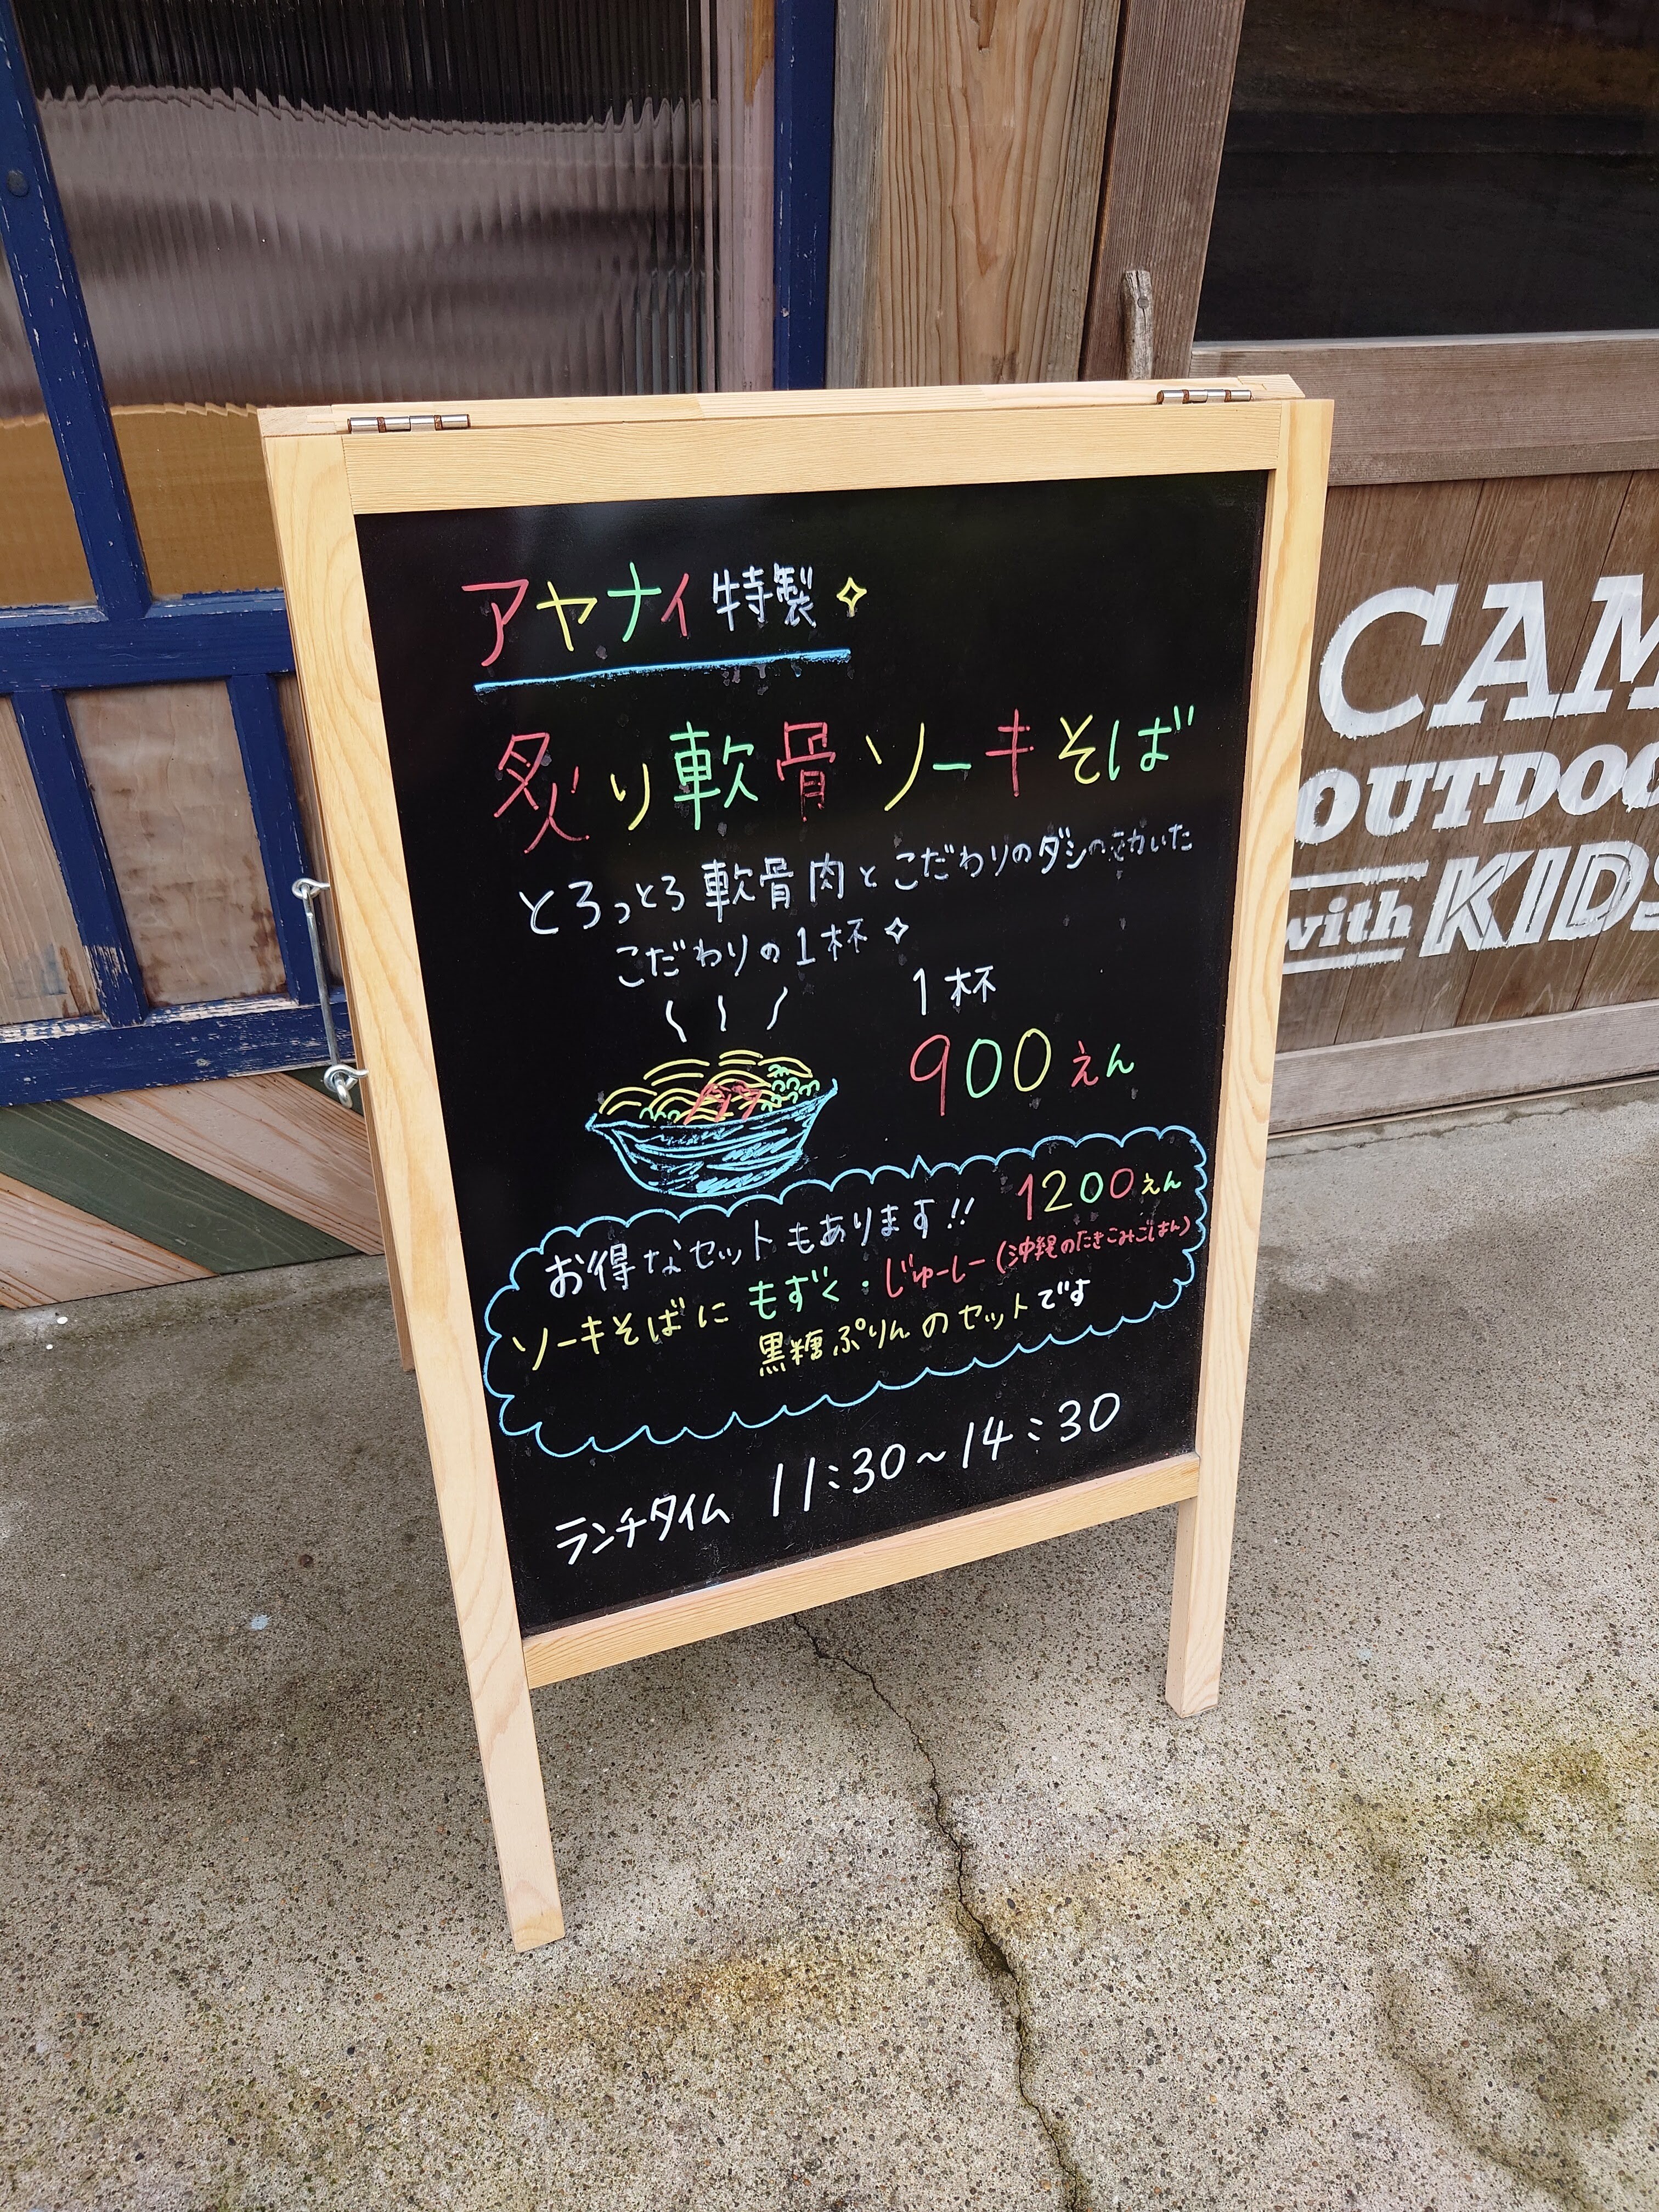 アヤナイ特製
炙り軟骨ソーキそば
とろっとろ軟骨肉とこだわりのダシのきいた
こだわりの1杯
1杯
900えん
お得なセットもあります!! 1200えん
ソーキそばにもずく・じゅーしー(沖縄のたきこみごはん)
黒糖ぷりんのセットです
ランチタイム 11:30~14:30
CAM
OUTDOO
with KIDS